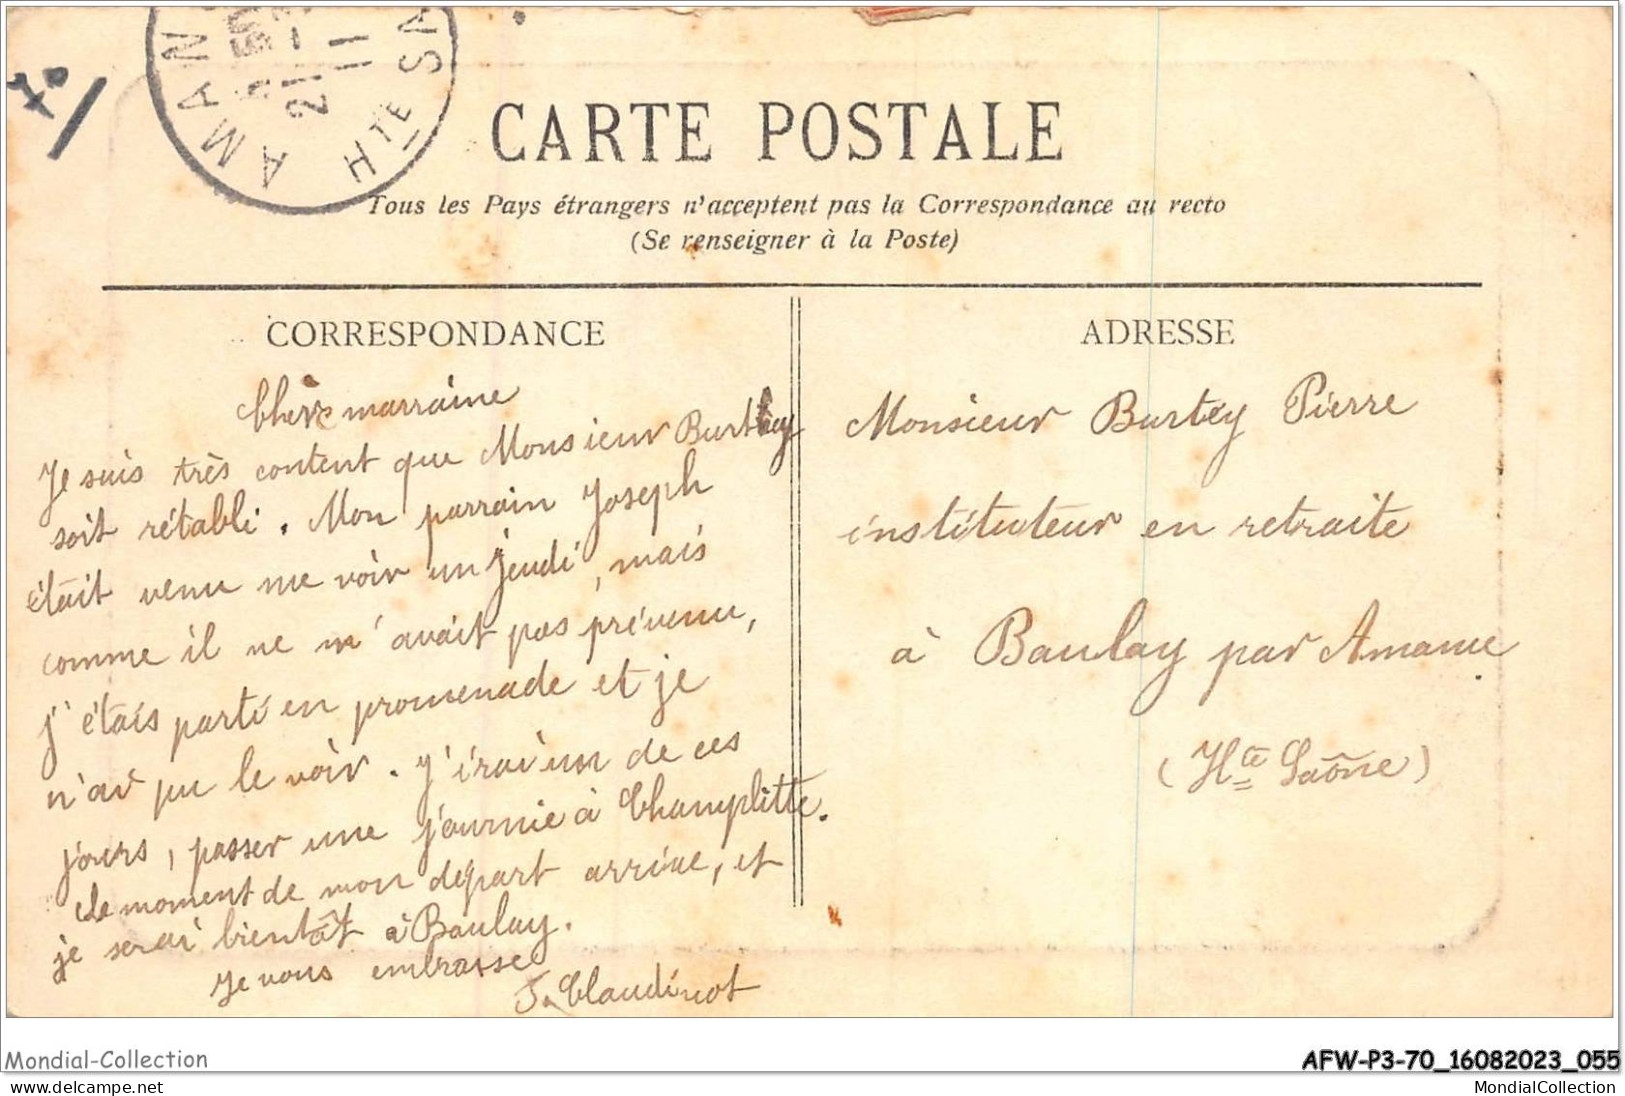 70/
AMANCE
21
11
HTE SA
CARTE POSTALE
Tous les Pays étrangers n'acceptent pas la Correspondance au recto
(Se renseigner à la Poste)
CORRESPONDANCE
Chère marraine
Je suis très content que Monsieur Burthey
soit rétabli. Mon parrain Joseph
était venu me voir un jeudi, mais
comme il ne m'avait pas prévenu,
j'étais parti en promenade et je
n'ai pu le voir. J'irai un de ces
jours, passer une journie à Champlitte.
Le moment de mon départ arrive, et
je serai bientôt à Baulay.
Je vous embrasse
J. Claudinot
ADRESSE
Monsieur Burtey Pierre
instituteur en retraite
à Baulay par Amance
(Hte Saône)
Mondial-Collection
AFW-P3-70_16082023_055
www.delcampe.net
MondialCollection